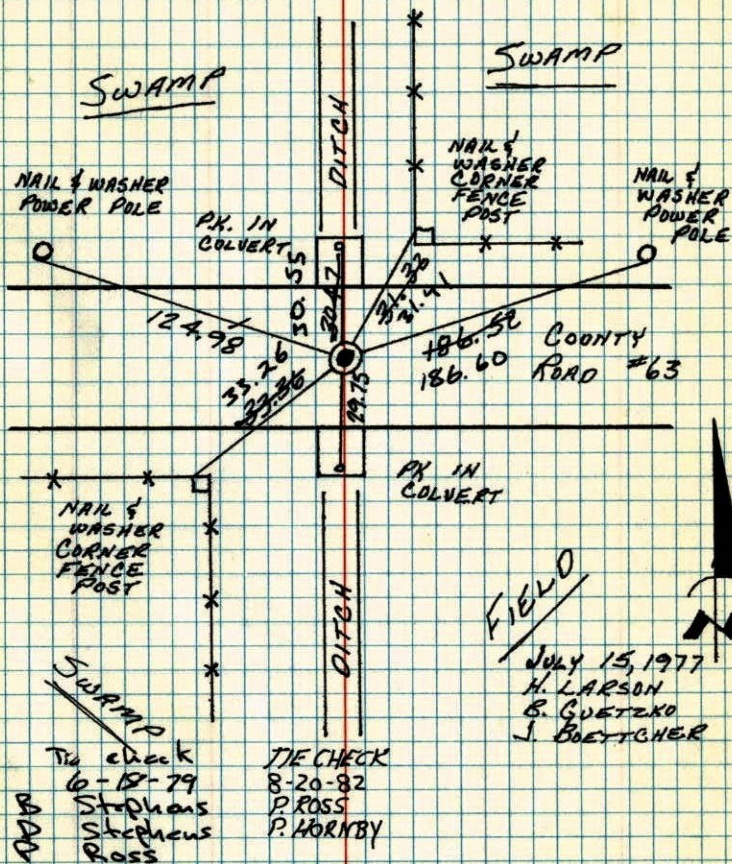 SWAMP
SWAMP
DITCH
NAIL & WASHER
POWER POLE
P.K. IN
COLVERT
NAIL &
WASHER
CORNER
FENCE
POST
NAIL &
WASHER
POWER
POLE
124.98
30.55
31.41
186.52
186.60
COUNTY
ROAD #63
33.26
33.36
29.75
PK IN
COLVERT
NAIL &
WASHER
CORNER
FENCE
POST
DITCH
FIELD
N
SWAMP
JULY 15, 1977
H. LARSON
B. GUETZKO
J. BOETTCHER
Tie check
6-18-79
B Stephens
D Stephens
Ross
TIE CHECK
8-20-82
P. ROSS
P. HORNBY